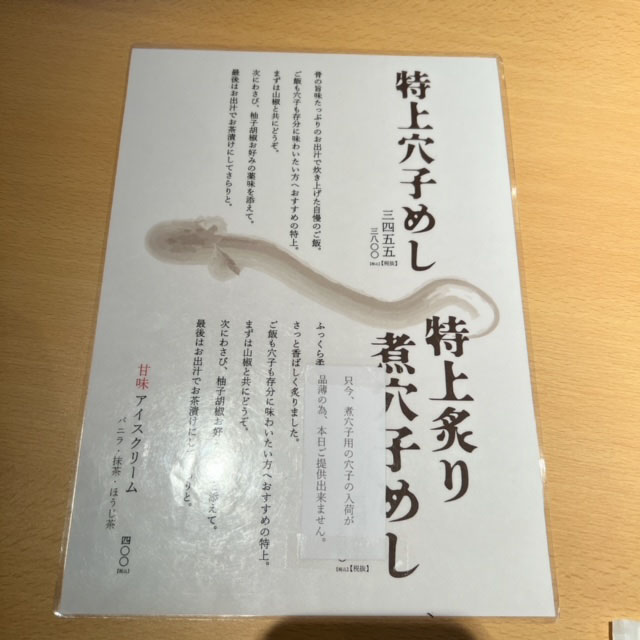 特上穴子めし
三四五五
三八〇〇
【税込】【税抜】
骨の旨味たっぷりのお出汁で炊き上げた自慢のご飯。
ご飯も穴子も存分に味わいたい方へおすすめの特上。
まずは山椒と共にどうぞ。
次にわさび、柚子胡椒お好みの薬味を添えて。
最後はお出汁でお茶漬けにしてさらりと。
特上炙り
煮穴子めし
【税込】【税抜】
只今、煮穴子用の穴子の入荷が
品薄の為、本日ご提供出来ません。
ふっくら
さっと香ばしく炙りました。
ご飯も穴子も存分に味わいたい方へおすすめの特上。
まずは山椒と共にどうぞ。
次にわさび、柚子胡椒お好 添えて。
最後はお出汁でお茶漬けに りと。
甘味 アイスクリーム
バニラ・抹茶・ほうじ茶
四〇〇
【税込】